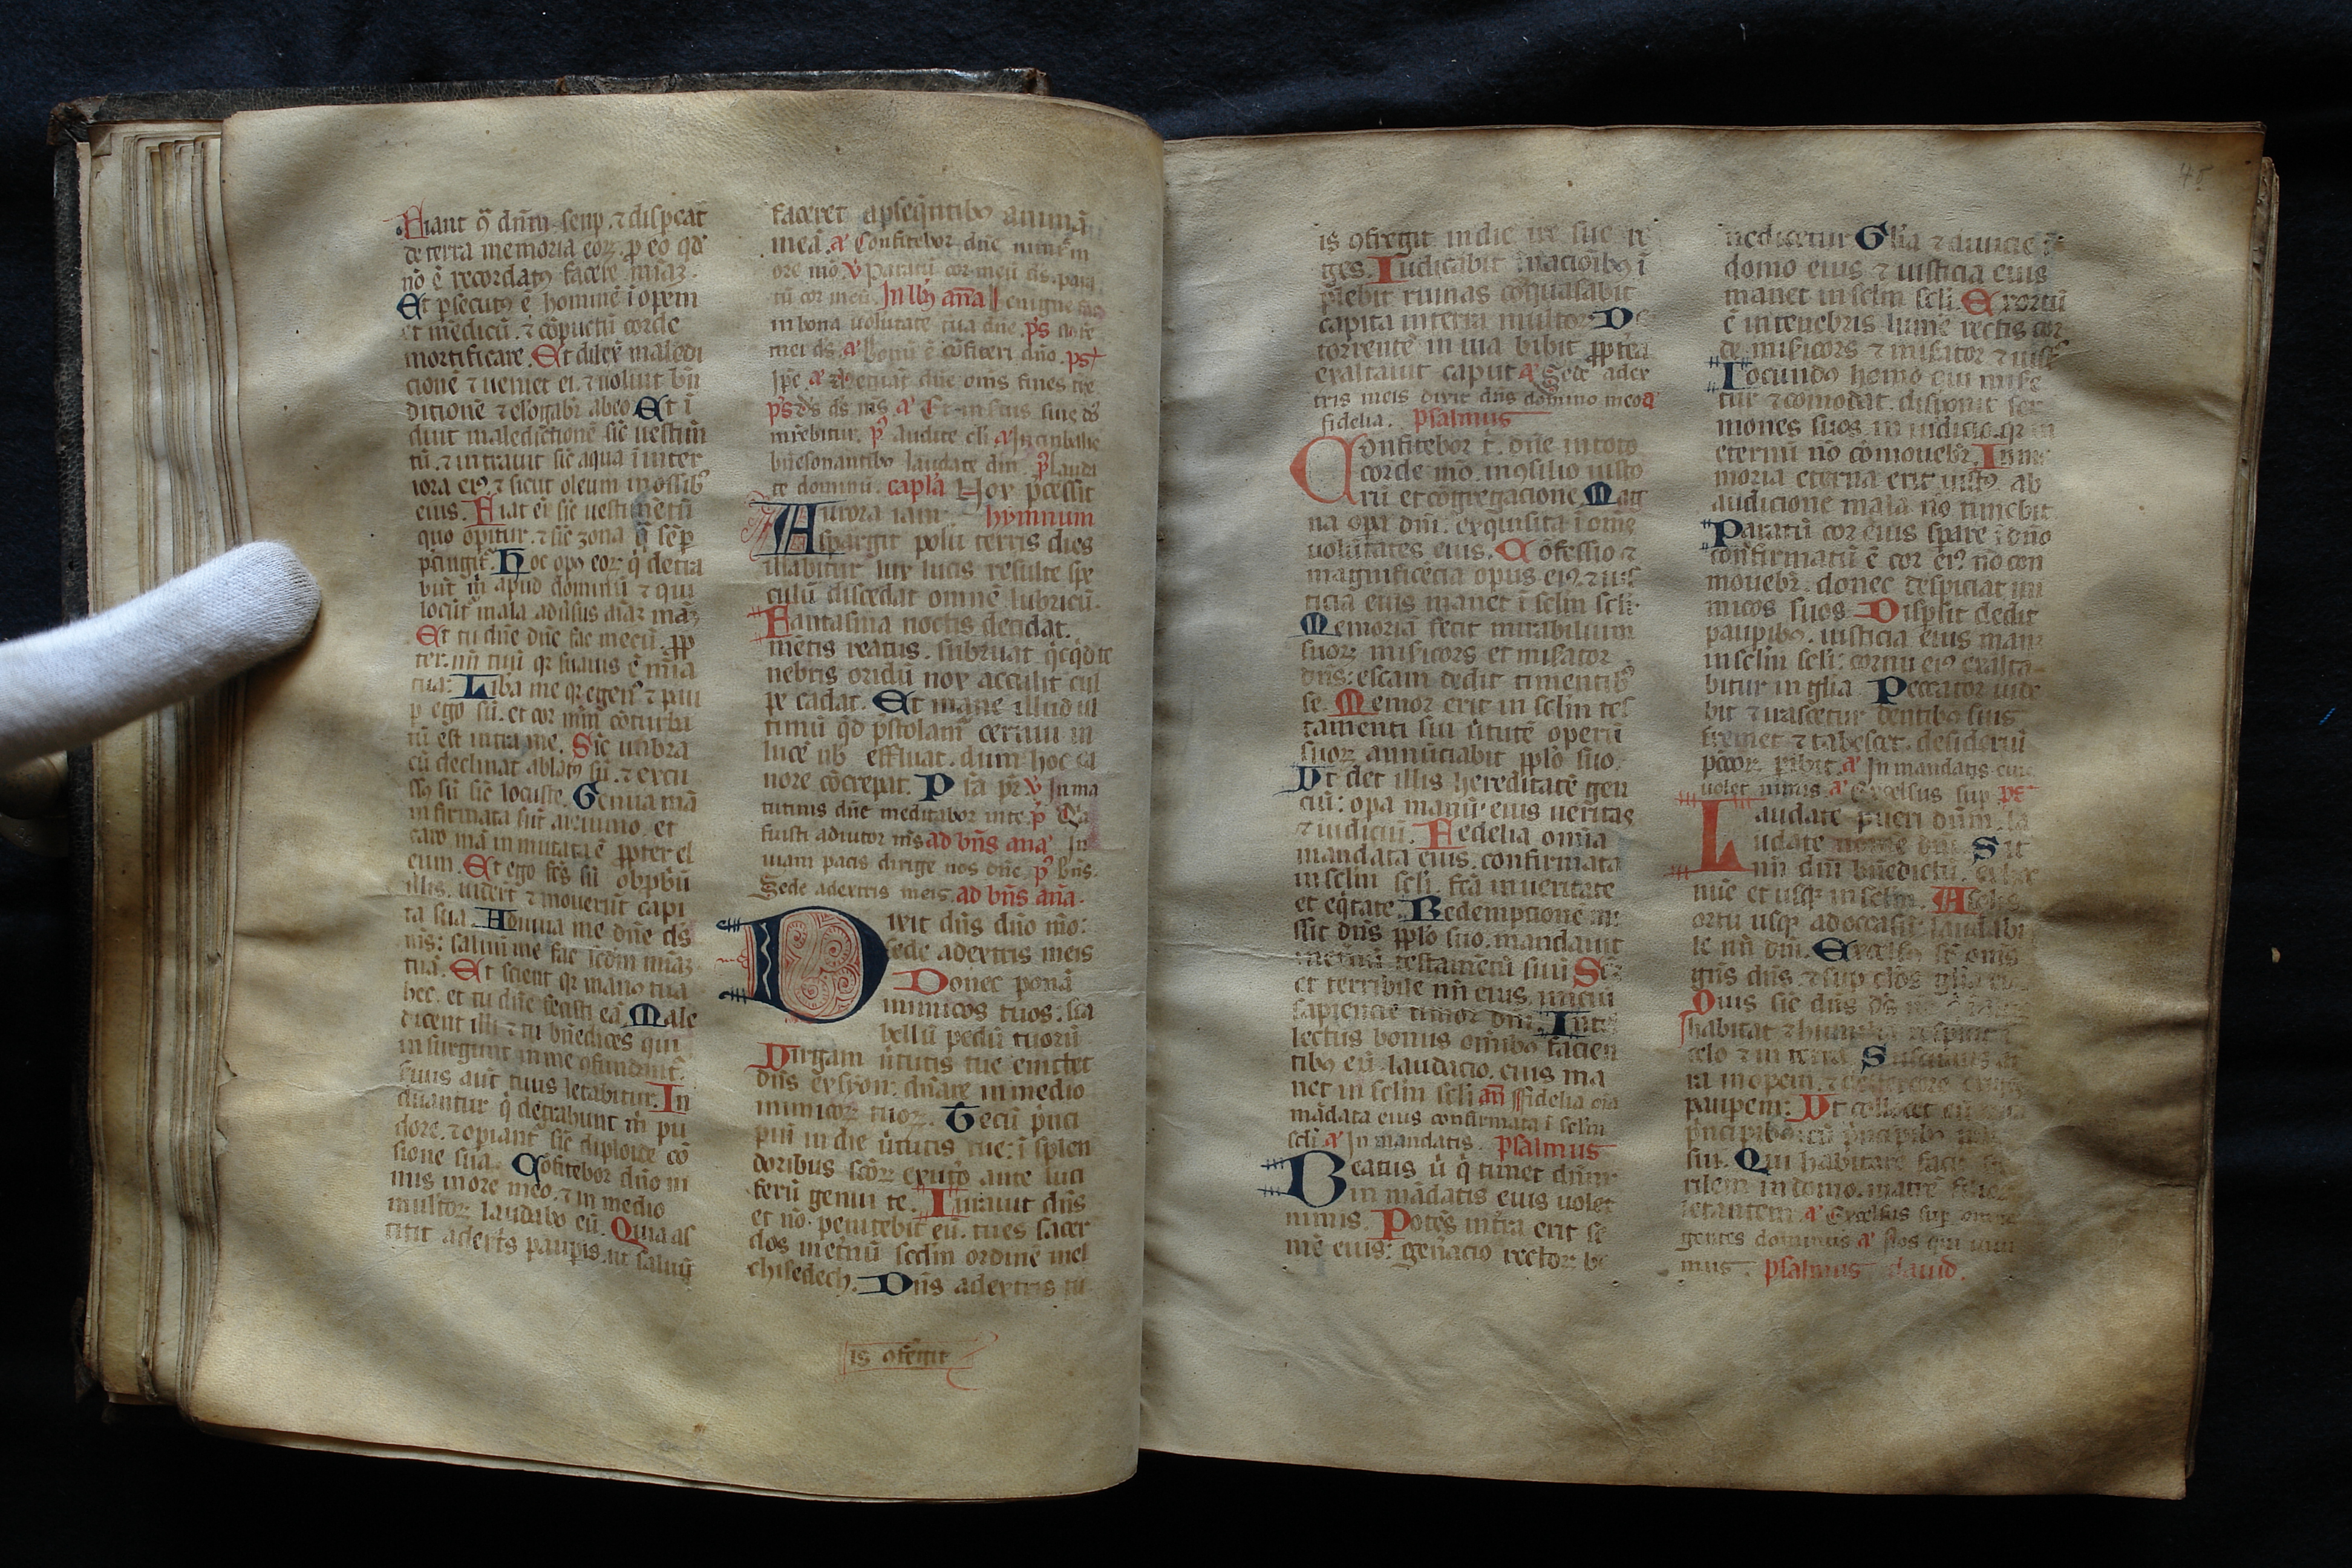 Fiant ꝯ dn̄m semp. ⁊ dispeat
de terra memoria eoꝝ. ꝑ eo qd̓
nō ē recordatꝰ facere miāꝫ.
Et ꝑsecutꝰ ē hominē īopem
et mēdicū. ⁊ cōpūctū corde
mortificare. Et dilexͭ maledi
cionē ⁊ ueniet ei. ⁊ noluit bn̄
dictionē ⁊ elōgabr̄ ab eo. Et ī
duit maledictionē sic̄ uestim̄
tū. ⁊ intrauit sic̄ aqua ī inter
iora eiꝰ ⁊ sicut oleum in ossibꝰ
eius. Fiat ei sic̄ uestimētū
quo opitur. ⁊ sic̄ zona q̄ sēꝑ
p̄cingit̄. Hoc opꝰ eoꝝ q̄ detra
hūt m̄ apud dominū ⁊ qui
locūt̄ mala aduͥsus aīaꝫ māꝫ
Et tu dn̄e dn̄e fac mecū. ꝓp
ter. nn̄ tuū qꝛ suauis ē mīa
tua: Liba me qꝛ egenꝰ ⁊ pau
ꝑ ego sū. et cor mm̄ cōturba
tū est intra me. Sic̄ umbra
cū declinat ablatꝰ sū. ⁊ excu
ssꝰ sū sic̄ locuste. Genua mā
infirmata sūt a ieiuno. et
caro mā inmutata ē ꝓpter ol
eum. Et ego fc̄s sū obꝓbriū
illis. uider̄t ⁊ mouerūt capi
ta sua. Adiuua me dn̄e ds̄
ms̄: saluū me fac scd̄m miāꝫ
tuā. Et scient qꝛ manꝰ tua
hec. et tu dn̄e fecisti eā. Male
dicent illi ⁊ tu bn̄edices qui
insurgunt in me ꝯfundant̄.
suus aut̄ tuus letabitur. In
duantur q̄ detrahunt m̄ pu
dore. ⁊ opiant̄ sic̄ diploide cō
sione sua. Cōfitebor dn̄o ni
mis in ore meo. ⁊ in medio
multoꝝ laudabo eū. Quia as
titit adext̄s pauꝑis. ut saluū
faceret a ꝑseq̄ntibꝰ animā
meā. a͛ Confitebor dn̄e nimis in
ore mō. v̄ Paratū cor meū ds̄. para
tū cor meū. In llꝰ an̄a Benigne fac
in bona uolūtate tua dn̄e. ps̄
mei ds̄. a͛ bonū ē cōfiteri dn̄o. ps̄
ps̄ ds̄ ds̄ ms̄. a͛
bn̄esonantibꝰ laudate dn̄m. p̄ laudi
te dominū. capl̄a Nox p̄cessit
Aurora iam hymnum
spargit polū terris dies
illabitur lux lucis resulte spe
culū discedat omnē lubricū.
Fantasma noctis decidat.
mētis reatus. subruat
nebris oridū nox acculit cul
pe cadat. Et mane illud ul
timū qd̓ p̄stolam̄ cernui in
lucē nb̄ effluat. dum hoc ca
nore cōcrepat. P sta pr̄ v̄ In ma
tutinis dn̄e meditabor in te. p̄ Qa
fuisti adiutor ms̄ ad bn̄s ana͛ In
uiam pacis dirige nos dn̄e. p̄ bn̄s.
Sede adextris meis. ad bn̄s an̄a.
Dixit dn̄s dn̄o mō:
sede adextris meis
Donec ponā
inimicos tuos: sca
bellū pedū tuorū
Virgam uͥtutis tue emittet
dn̄s exsyon: dn̄are in medio
inimicoꝝ tuoꝝ. Tecū p̄nci
piū in die uͥtutis tue: ī splen
doribus sc̄oꝝ ex utō ante luci
ferū genui te. Iurauit dn̄s
et nō. penitebit eū. tu es sacer
dos in et̄nū scd̄m ordinē mel
chisedech. Dn̄s adextris tu
is ꝯfregit
is ꝯfregit in die ire sue re
ges. Iudicabit ī nacionibꝰ ī
plebit ruinas cōquasabit
capita in terra multoꝝ. De
torrente in uia bibit ꝓpt̄ea
exaltauit caput a͛ Sede adex
tris meis dixit dn̄s domino meo a͛
fidelia. psalmus
Confitebor t̄. dn̄e in toto
corde mō. in ꝯsilio iusto
rū et cōgregacione. Mag
na opa dn̄i: exquisita ī ome
uolūtates eius. Cōfessio ⁊
magnificēcia opus eiꝰ. ⁊ ius
ticia eius manet ī sclm scli.
Memoriā fecit mirabilium
suoꝝ misīcors et misator
dn̄s: escam dedit timentibꝰ
se. Memor erit in sclm tes
tamenti sui uͥtutē operū
suoꝝ annūciabit pplō suo.
Vt det illis hereditatē gen
ciū: opa manū eius ueritas
⁊ iudiciū. Fidelia omīa
mandata eius. confirmata
in sclm scli. fc̄a in ueritate
et eq̄tate. Redemptionē mi
sit dn̄s pplō suo. mandauit
in et̄nū testamētū suū Sc̄m
et terribile nn̄ eius. iniciū
sapiencie timor dn̄i. Intel
lectus bonus omībꝰ facien
tibꝰ eū. laudacio. eius ma
net in sclm scli an̄ ffidelia oīa
mādata eius confirmata ī sclm
scli a͛ In mandatis. psalmus
Beatus uͥ q̄ timet dn̄m:
in mādatis eius uolet
nimis. Potēs in tr̄a erit se
mē eius: gen̄acio rectoꝝ be
nedicetur Glīa ⁊ diuicie ī
domo eius ⁊ iusticia eius
manet in sclm scli. Exortū
ē in tenebris lumē rectis cor
de misīcors ⁊ misator ⁊ iust̄
Iocundꝰ homo qui mise
tur ⁊ comodat. disponit ser
mones suos in iudicio. qꝛ in
eternū nō cōmouebr̄. In me
moria eterna erit iustꝰ ab
audicione mala nō timebit
Paratū cor eius spare ī dn̄o
confirmatū ē cor eiꝰ nō con
mouebr̄. donec despiciat ini
micos suos. Disꝑsit dedit
pauꝑibꝰ. iusticia eius man
in sclm scli: cornu eiꝰ exalta
bitur in glīa. Peccator uide
bit ⁊ irascetur dentibꝰ suis
fremet ⁊ tabescet. desideriū
pc̄coꝝ ꝑibit. a͛ In mandatis eius
uolet nimis. a͛ Excelsus sup ps̄
Laudate pueri dn̄m. la
udate nomē dn̄i. Sit
nn̄ dn̄i bn̄edictū. ex hoc
nūc et usqꝫ in sclm. A solis
ortu usqꝫ ad occasū: laudabi
le nn̄ dn̄i. Excelsꝰ sꝑ oms̄
gn̄s dn̄s. ⁊ sup celōs glīa eiꝰ
Quis sic̄ dn̄s ds̄ nr̄
habitat ⁊ humilia respicit ī
celo ⁊ in terra. Suscitans a
ra inopem. ⁊ de stercore
pauꝑem: Vt collocet eū
p̄ncipibꝰ: cū p̄ncipibꝰ
sui. Qui habitare facit ste
rilem in domo. matrē filioꝝ
letantem. a͛ Excelsus sup omnes
gentes dominus a͛ Nos qui uiui
mus. psalmus dauid.
45